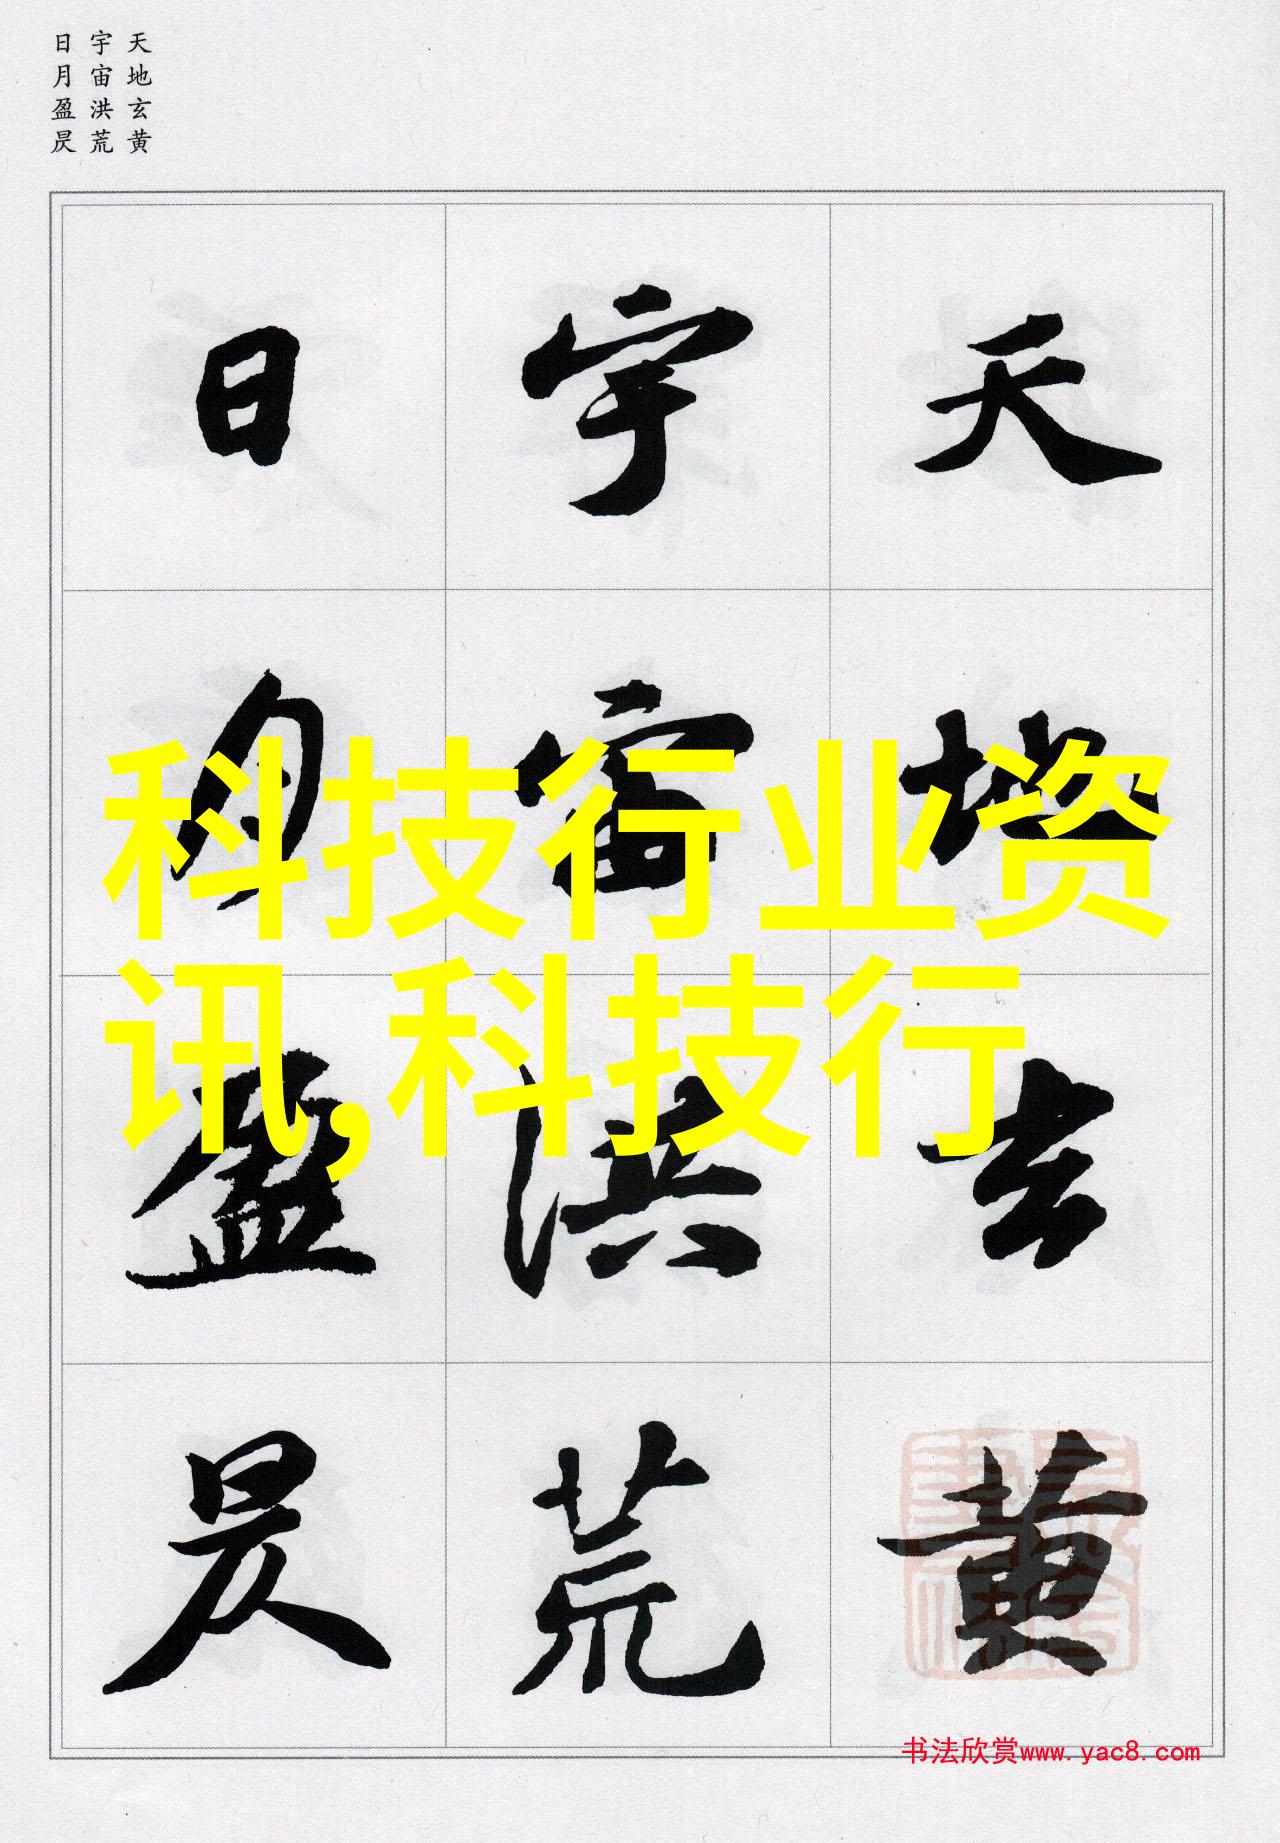 天地玄黄
宇宙洪荒
日月盈昃
天地玄黄
宇宙洪荒
日月盈昃
科技行业资
讯,科技行
书法欣赏www.yac8.com